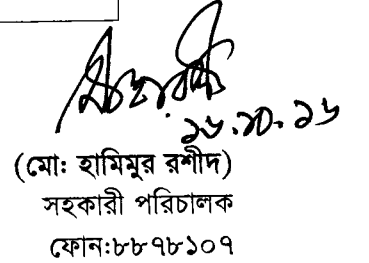 ১৬.১০.১৬
(মোঃ হামিমুর রশীদ)
সহকারী পরিচালক
ফোন:৮৮৭৮১০৭